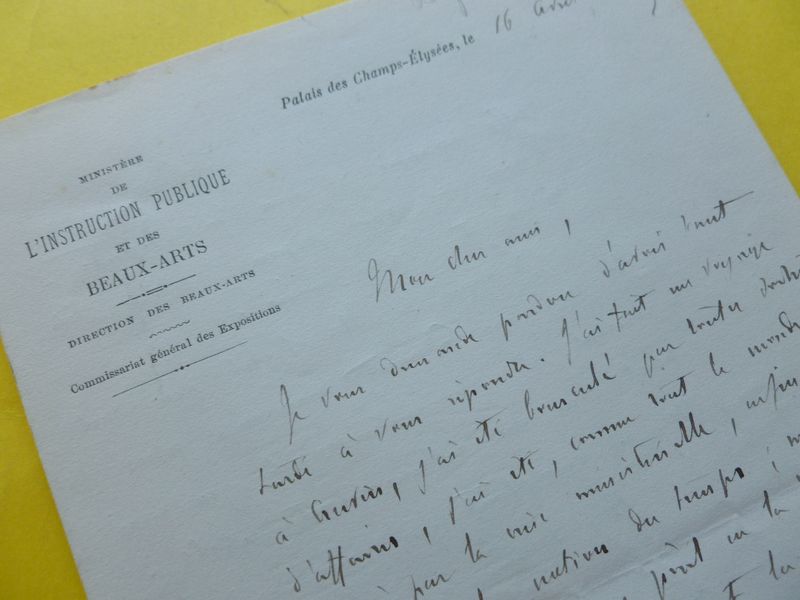 Palais des Champs-Élysées, le 16 avril
MINISTÈRE
DE
L'INSTRUCTION PUBLIQUE
ET DES
BEAUX-ARTS
DIRECTION DES BEAUX-ARTS
Commissariat général des Expositions
Mon cher ami,
Je vous demande pardon d'avoir tant
tardé à vous répondre. J'ai fait un voyage
à , j'ai été bousculé par toutes
d'affaires, j'ai été, comme tout le monde
par la crise ministérielle,
du temps,
la